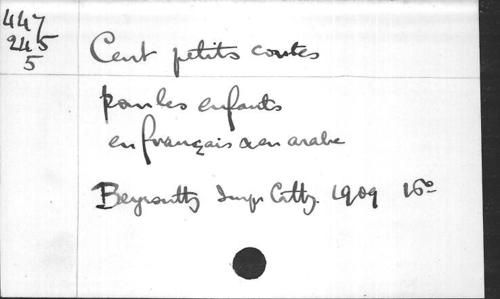 447
245
5
Cent petits contes
pour les enfants
en français & en arabe
Beyrouth Impr Cath. 1909 16°